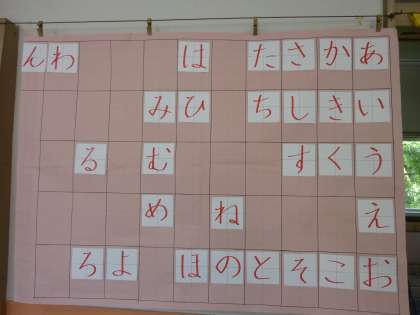 あいうえお
かきくこ
さしすそ
たちと
ねの
はひほ
みむめ
よ
るろ
わ
ん